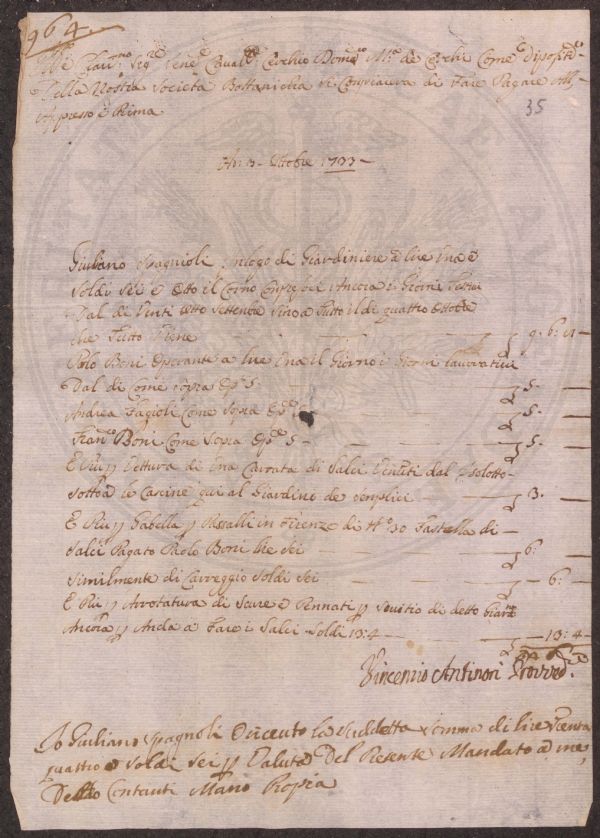 964.
Sig.re Cav.re Cerchio Dom.co M.a de Cerchi Come Diposit.o
Della Nostra Società Bottanicha si Compiaccia di Fare Pagare
Appresso e Prima
35
A di 3 Ottobre 1733 -
Giuliano Spagnioli in logo di Giardiniere a lire Una e
Soldi Sei e Otto il Giorno Compresoci Ancora i Giorni Festivi
Dal di Venti Otto Settembre Sino a Tutto il di quattro Ottobre
che Tutto Viene 9. 6: 8
Polo Boni Operante a lire Una il Giorno i Giorni lavorativi
Dal di Come Sopra Op.e 5 - 5. -
Andrea Fagioli Come Sopra Op.e 5. -
Fran.co Boni Come Sopra Op.e 5 - 5. -
E Più p Vettura di Una Carrata di Salci Venuti dal Isolotto
Sotto a le Cascine qui al Giardino de Semplici 3. -
E Più p Gabella p Passalli in Firenze di N.o 30 Fastella di
Salci Pagato Paolo Boni lire Sei 6: -
Similmente di Carreggio Soldi Sei - 6: -
E Più p Arrotatura di Scure e Pennati p Servitio di detto Giar.
Ancora p Anda a Fare i Salci Soldi 13:4 - 13: 4 -
34 6
Vincenzio Antinori Provved.re
Io Giuliano Spagnoli O riceuto la Suddetta Somma di lire Trenta
quattro e Soldi Sei p Valuta Del Presente Mandato a me
Detto Contanti Mano Propia